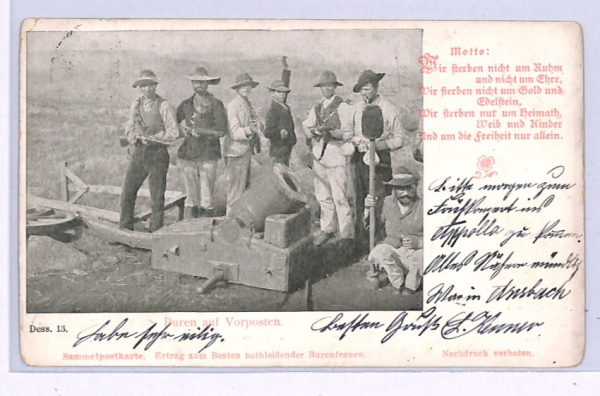 Motto:
Wir sterben nicht um Ruhm
und nicht um Ehre,
Wir sterben nicht um Gold und
Edelstein,
Wir sterben nur um Heimath,
Weib und Kinder
Und um die Freiheit nur allein.
Bitte morgen zum
Frühkonzert ins
Appolla zu kommen
Alles Nähere mündl
War in Auerbach
Buren auf Vorposten.
Dess. 13.
habe sehr eilig.
besten Gruß
Sammelpostkarte. Ertrag zum Besten nothleidender Burenfrauen.
Nachdruck verboten.